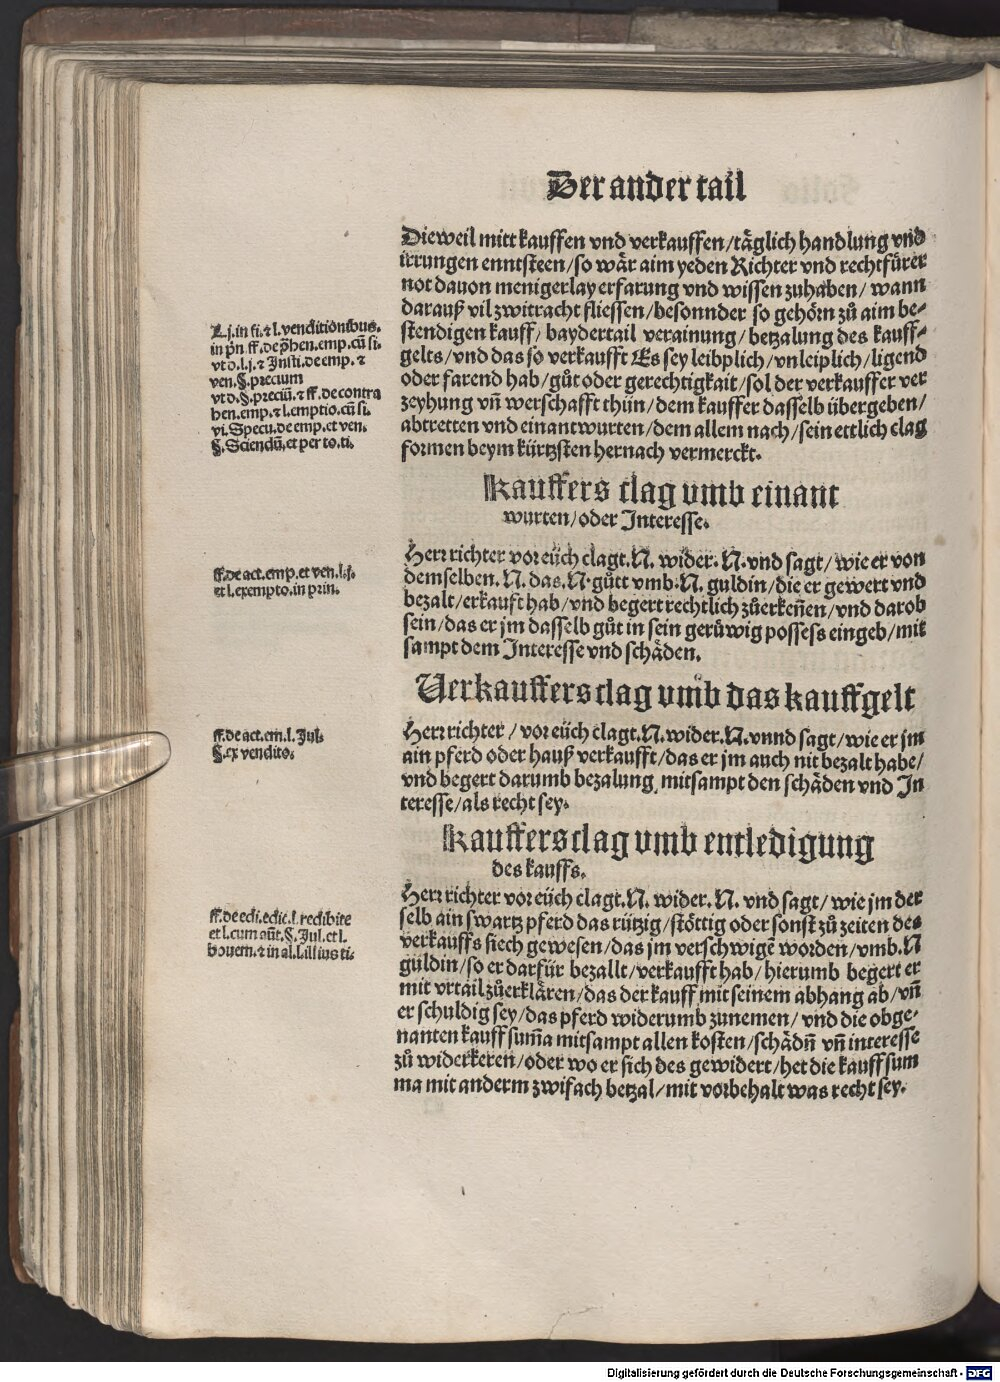 Der ander tail
Dieweil mitt kauffen vnd verkauffen/täglich handlung vnd
irrungen enntsteen/so wär aim yeden Richter vnd rechtfürer
not dauon menigerlay erfarung vnd wissen zuhaben/ wann
darauß vil zwitracht fliessen/besonnder so gehörn zů aim be⸗
stendigen kauff/ baydertail verainung/ betzalung des kauff⸗
gelts/vnd das so verkaufft Es sey leibplich/vnleiplich/ligend
oder farend hab/gůt oder gerechtigkait/sol der verkauffer ver
zeyhung vñ werschafft thün/dem kauffer dasselb übergeben/
abtretten vnd einantwurten/dem allem nach/sein ettlich clag
formen beym kürtzsten hernach vermerckt.
L.j.in fi.⁊ l.venditionibus.
in p̄n.ff.de p̄hen.emp.cū si.
vt d.l.j.⁊ Insti.de emp.⁊
ven.§.precium
vt d.§.preciū.⁊ ff.de contra
hen.emp.⁊ l.emptio.cū si.
vi.Specu.de emp.et ven.
§.Sciendū.et per to.ti.
Kauffers clag vmb einant
wurten/oder Interesse.
Herr richter vor eüch clagt.N. wider.N.vnd sagt/ wie er von
demselben.N.das.N.gůtt vmb.N. guldin/die er gewert vnd
bezalt/erkauft hab/vnd begert rechtlich zůerkeñen/vnd darob
sein/das er jm dasselb gůt in sein gerüwig possess eingeb/mit
sampt dem Interesse vnd schäden.
ff.de act.emp.et ven.l.j.
et l.exempto.in prin.
Verkauffers clag vmb das kauffgelt
Herr richter / vor eüch clagt.N.wider.N.vnnd sagt/wie er jm
ain pferd oder hauß verkaufft/das er jm auch nit bezalt habe/
vnd begert darumb bezalung mitsampt den schäden vnd In
teresse/als recht sey.
ff.de act.em.l.Jul.
§.ex vendito.
Kauffers clag vmb entledigung
des kauffs.
Herr richter vor eüch clagt.N. wider.N. vnd sagt/ wie jm der
selb ain swartz pferd das rützig/stöttig oder sonst zů zeiten des
verkauffs siech gewesen/das jm verschwigē worden/vmb.N
guldin/so er darfür bezallt/verkaufft hab/hierumb begert er
mit vrtail zůerklären/das der kauff mit seinem abhang ab/vñ
er schuldig sey/das pferd widerumb zunemen/ vnd die obge⸗
nanten kauff sum̄a mitsampt allen kosten/schädñ vñ interesse
zů widerkeren/oder wo er sich des gewidert/het die kauff sum
ma mit anderm zwifach betzal/mit vorbehalt was recht sey.
ff.de edi.edic.l.redibite
et l.cum aūt.§.Jul.et l.
bouem.⁊ in al.l.illius ti.
Digitalisierung gefördert durch die Deutsche Forschungsgemeinschaft - DFG